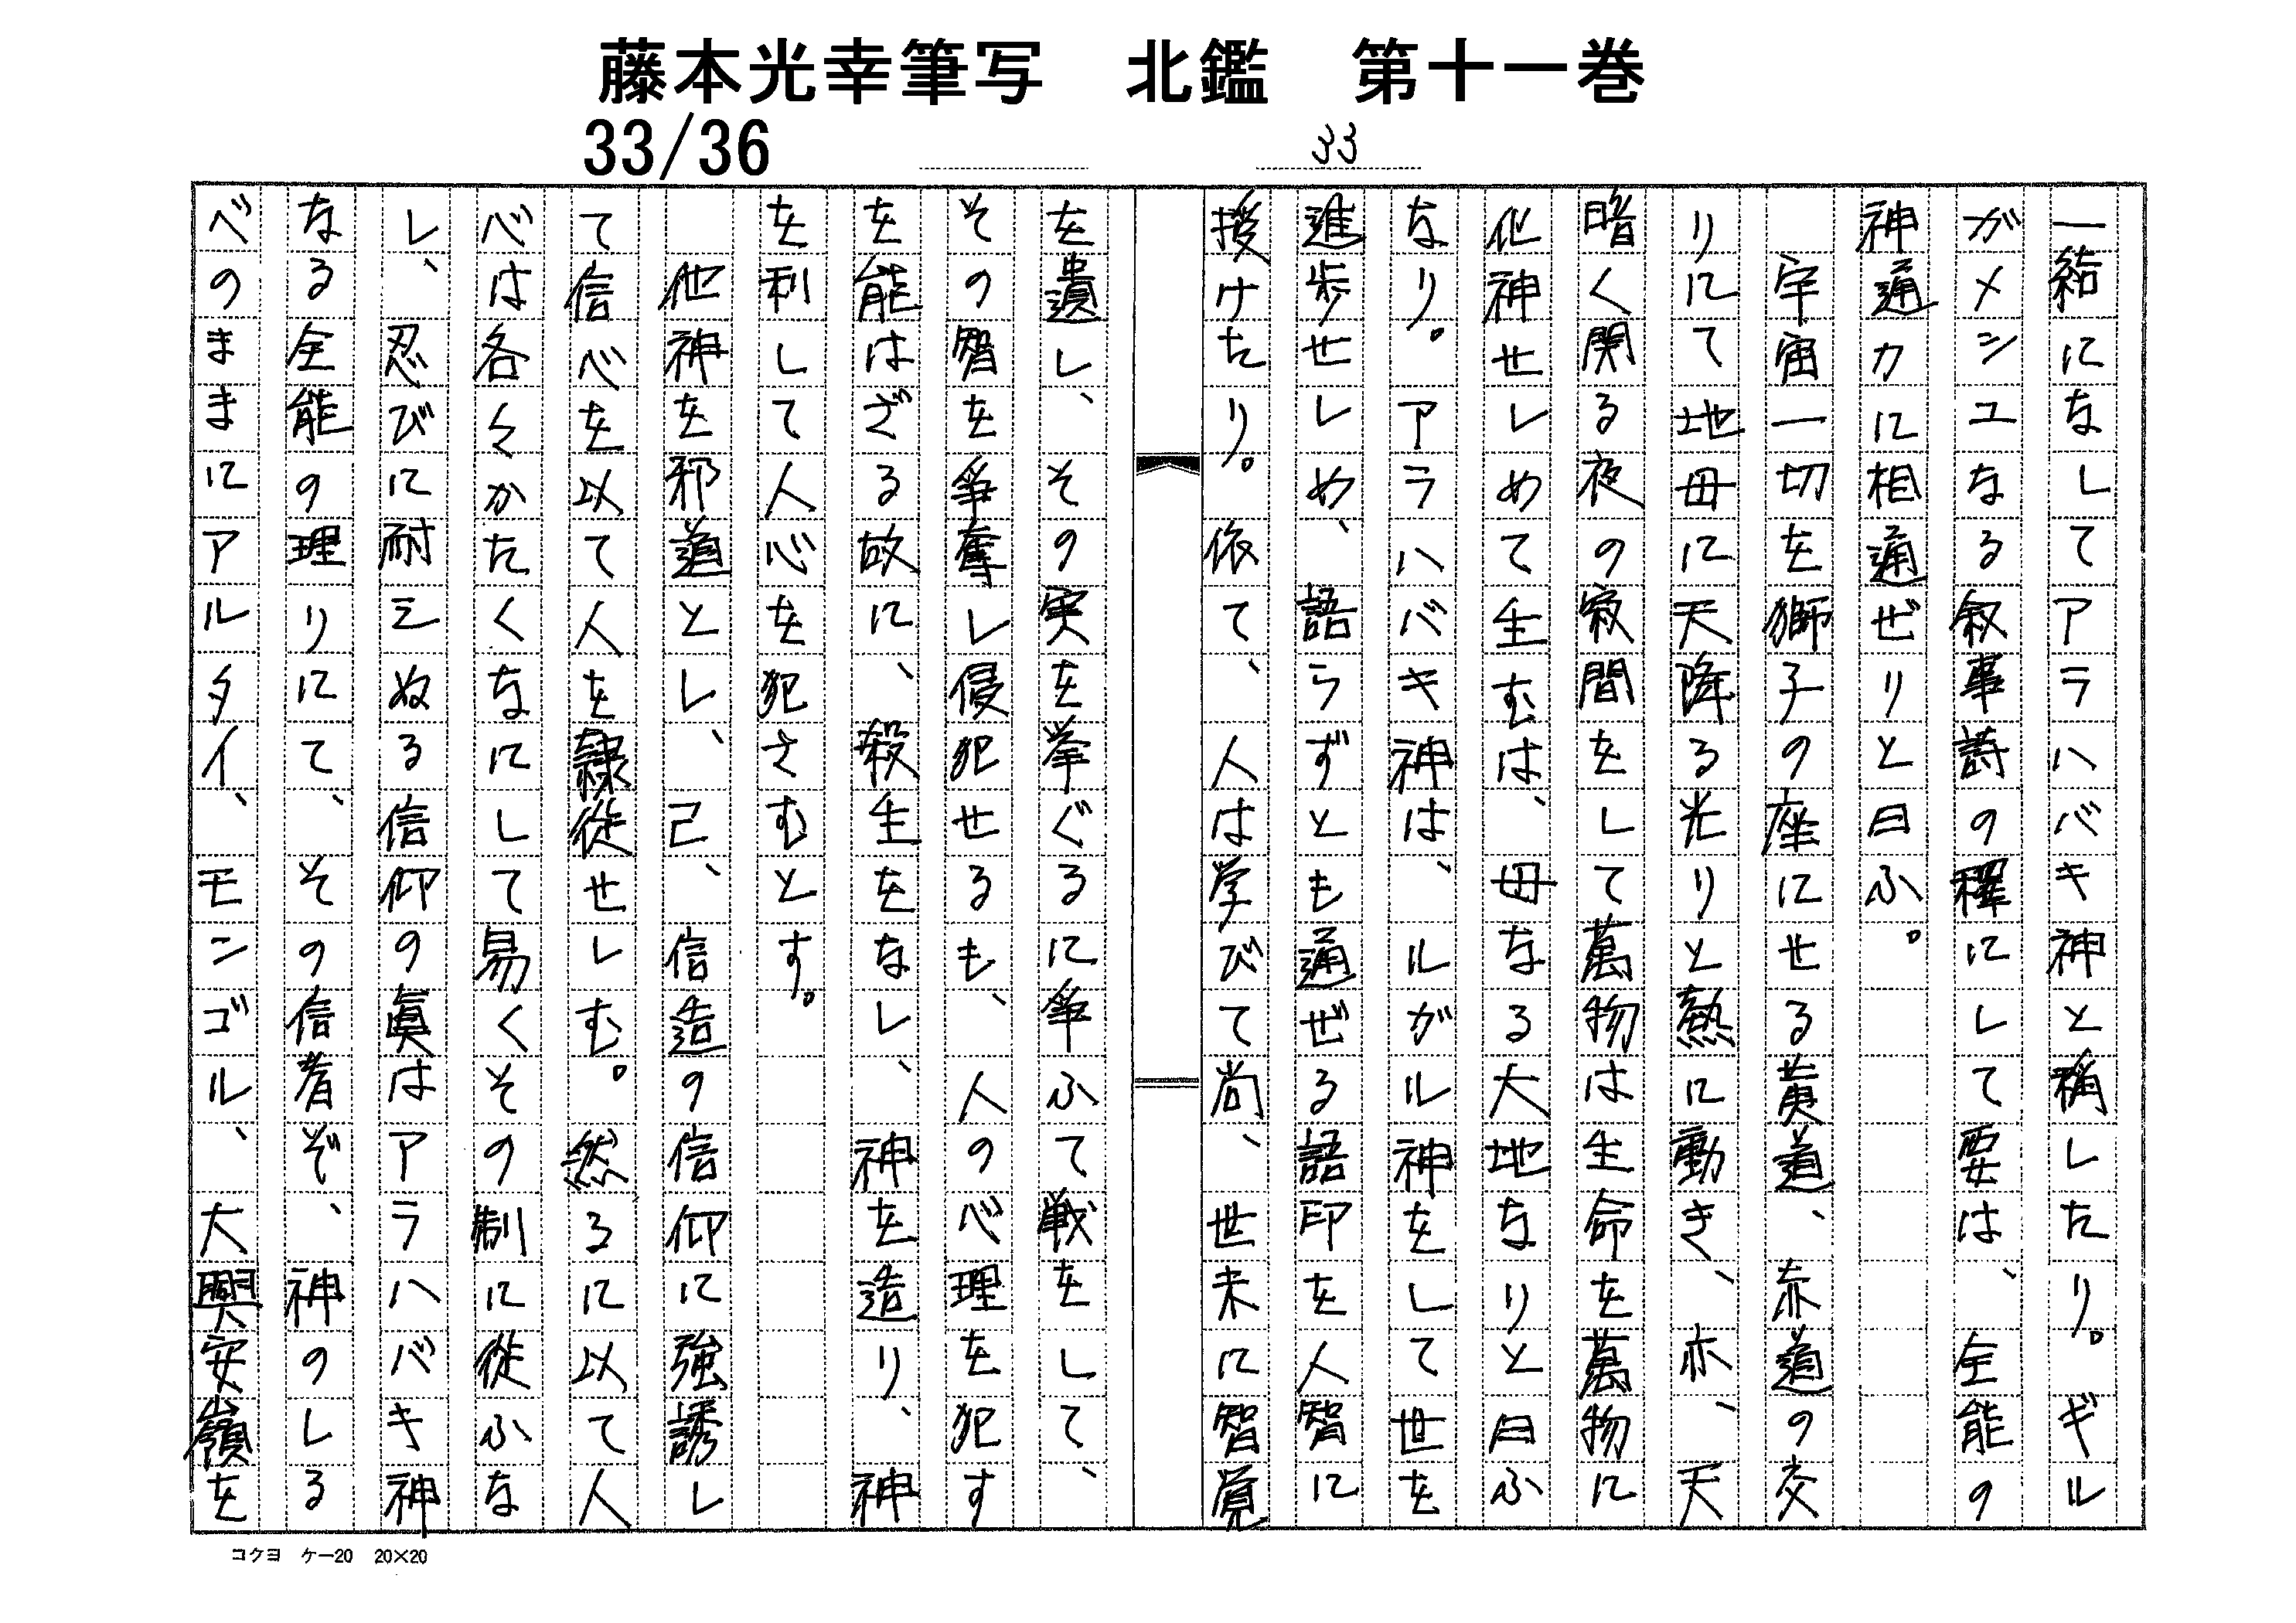 藤本光幸筆写　北鑑　第十一巻
33/36
33
一結になしてアラハバキ神と稱したり。ギル
ガメシユなる叙事詩の釋にして要は、全能の
神通力に相通ぜりと曰ふ。
宇宙一切を獅子の座にせる黄道、赤道の交
りにて地母に天降る光りと熱に動き、亦、天
暗く関る夜の寂間をして萬物は生命を萬物に
化神せしめて生むは、母なる大地なりと曰ふ
なり。アラハバキ神は、ルガル神をして世を
進歩せしめ、語らずとも通ぜる語印を人智に
授けたり。依て、人は学びて尚、世未に智覚
を遺し、その実を挙ぐるに争ふて戦をして、
その智を争奪し侵犯せるも、人の心理を犯す
を能はざる故に、殺生をなし、神を造り、神
を利して人心を犯さむとす。
他神を邪道とし、己、信造の信仰に強誘し
て信心を以て人を隷従せしむ。然るに以て人
べは各々かたくなにして易くその制に従ふな
し、忍びに耐シぬる信仰の眞はアラハバキ神
なる全能の理りにて、その信者ぞ、神のしる
べのままにアルタイ、モンゴル、大興安嶺を
コクヨ　ケー20　20×20